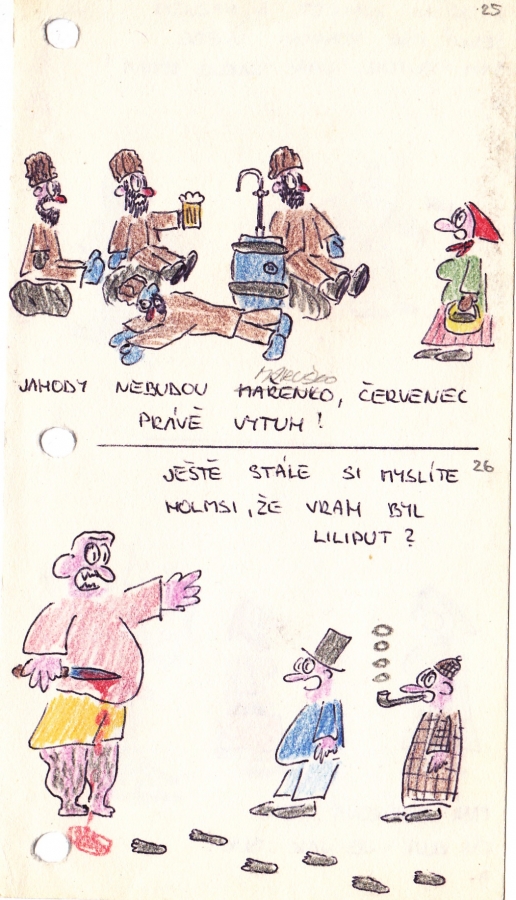 25
JAHODY NEBUDOU MARENKO, ČERVENEC
MARUŠKO
PRÁVĚ VYTUH!
26
JEŠTĚ STÁLE SI MYSLÍTE
HOLMSI, ŽE VRAH BYL
LILIPUT?